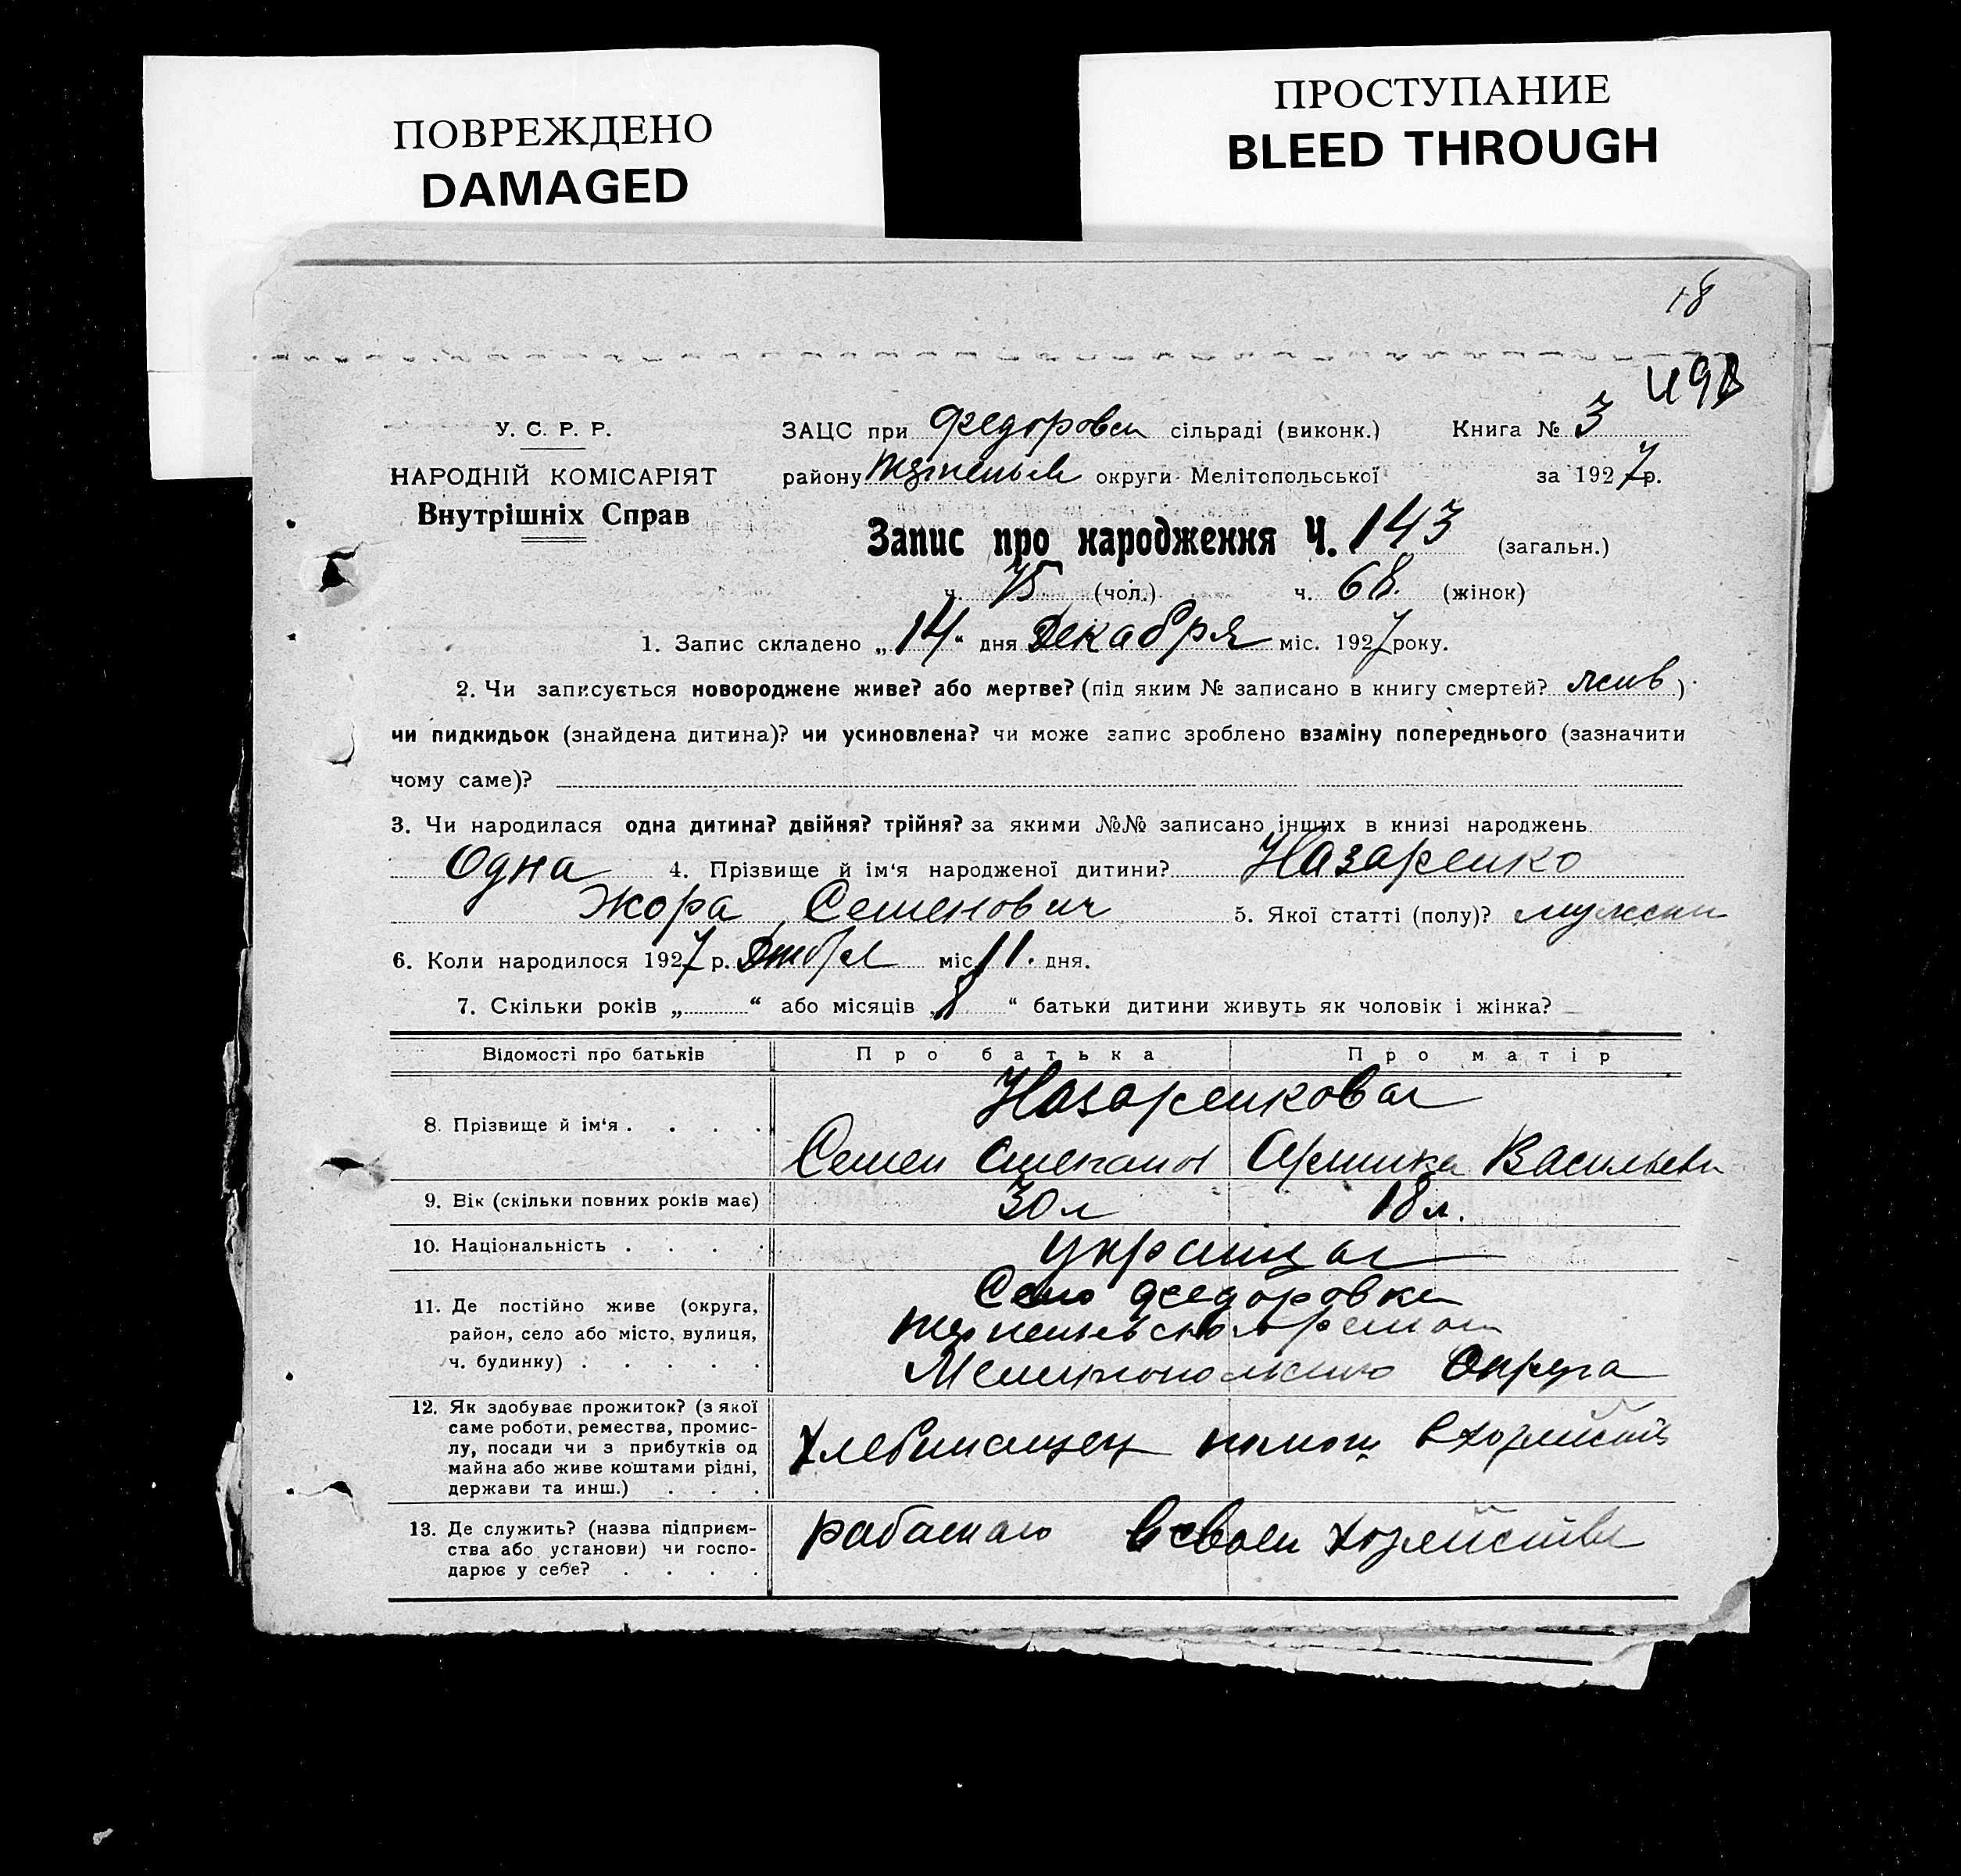 ПОВРЕЖДЕНО
DAMAGED
ПРОСТУПАНИЕ
BLEED THROUGH
18
У. С. Р. Р.
НАРОДНІЙ КОМІСАРІЯТ
Внутрішніх Справ
ЗАЦС при Федоровск сільраді (виконк.) Книга № 3
району округи Мелітопольської за 1927р.
Запис про народження Ч. 143 (загальн.)
ч. 75 (чол.) ч. 68. (жінок)
1. Запис складено „14“ дня Декабря міс. 1927 року.
2. Чи записується новороджене живе? або мертве? (під яким № записано в книгу смертей? жив)
чи пидкидьок (знайдена дитина)? чи усиновлена? чи може запис зроблено взаміну попереднього (зазначити
чому саме)?
3. Чи народилася одна дитина? двійня? трійня? за якими №№ записано інших в книзі народжень
Одна 4. Прізвище й ім‘я народженої дитини? Назаренко
Жора Семенович 5. Якої статті (полу)? мужск
6. Коли народилося 1927 р. міс. 11. дня.
7. Скільки років „ “ або місяців „8 “ батьки дитини живуть як чоловік і жінка?
Відомості про батьків Про батька Про матір
8. Прізвище й ім‘я . . . . Назаренкова
Семен Степанов Васильевн
9. Вік (скільки повних років має) 30 л 18 л.
10. Національність . . . . украинцы
11. Де постійно живе (округа,
район, село або місто, вулиця,
ч. будинку) . . . . .
Село Федоровка
Мелитопольского Округа
12. Як здобуває прожиток? (з якої
саме роботи, ремества, промис-
лу, посади чи з прибутків од
майна або живе коштами рідні,
держави та инш.) . . .
помощ в хозяйств
13. Де служить? (назва підприєм-
ства або установи) чи госпо-
дарює у себе? . . . .
работаю в своем хозяйстве